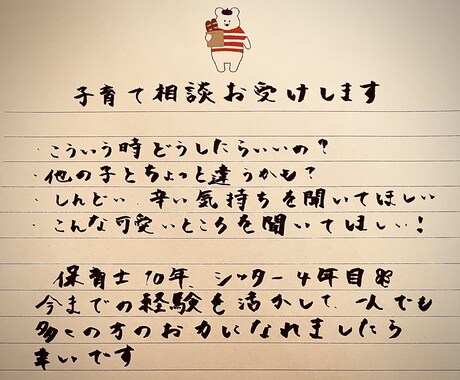 子育て相談お受けします
・こういう時どうしたらいいの?
・他の子とちょっと違うかも?
・しんどい、辛い気持ちを聞いてほしい
・こんな可愛いところを聞いてほしい!
保育士10年、シッター4年目
今までの経験を活かして、一人でも
多くの方のお力になれましたら
幸いです